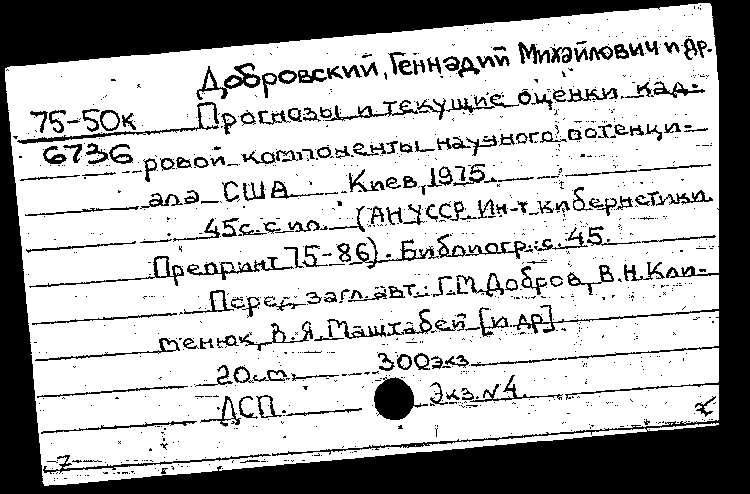 Добровский, Геннадий Михайлович и др.
75-50к Прогнозы и текущие оценки кад-
6736 ровой компоненты научного потенци-
ала США Киев, 1975.
45с. с ил. (АН УССР. Ин-т кибернетики.
Препринт 75-86). Библиогр.: с. 45.
Перед загл. авт.: Г.М. Добров, В.Н. Кли-
менюк, В.Я. Маштабей [и др].
20 см. 300 экз
ДСП. Экз. N 4.
7